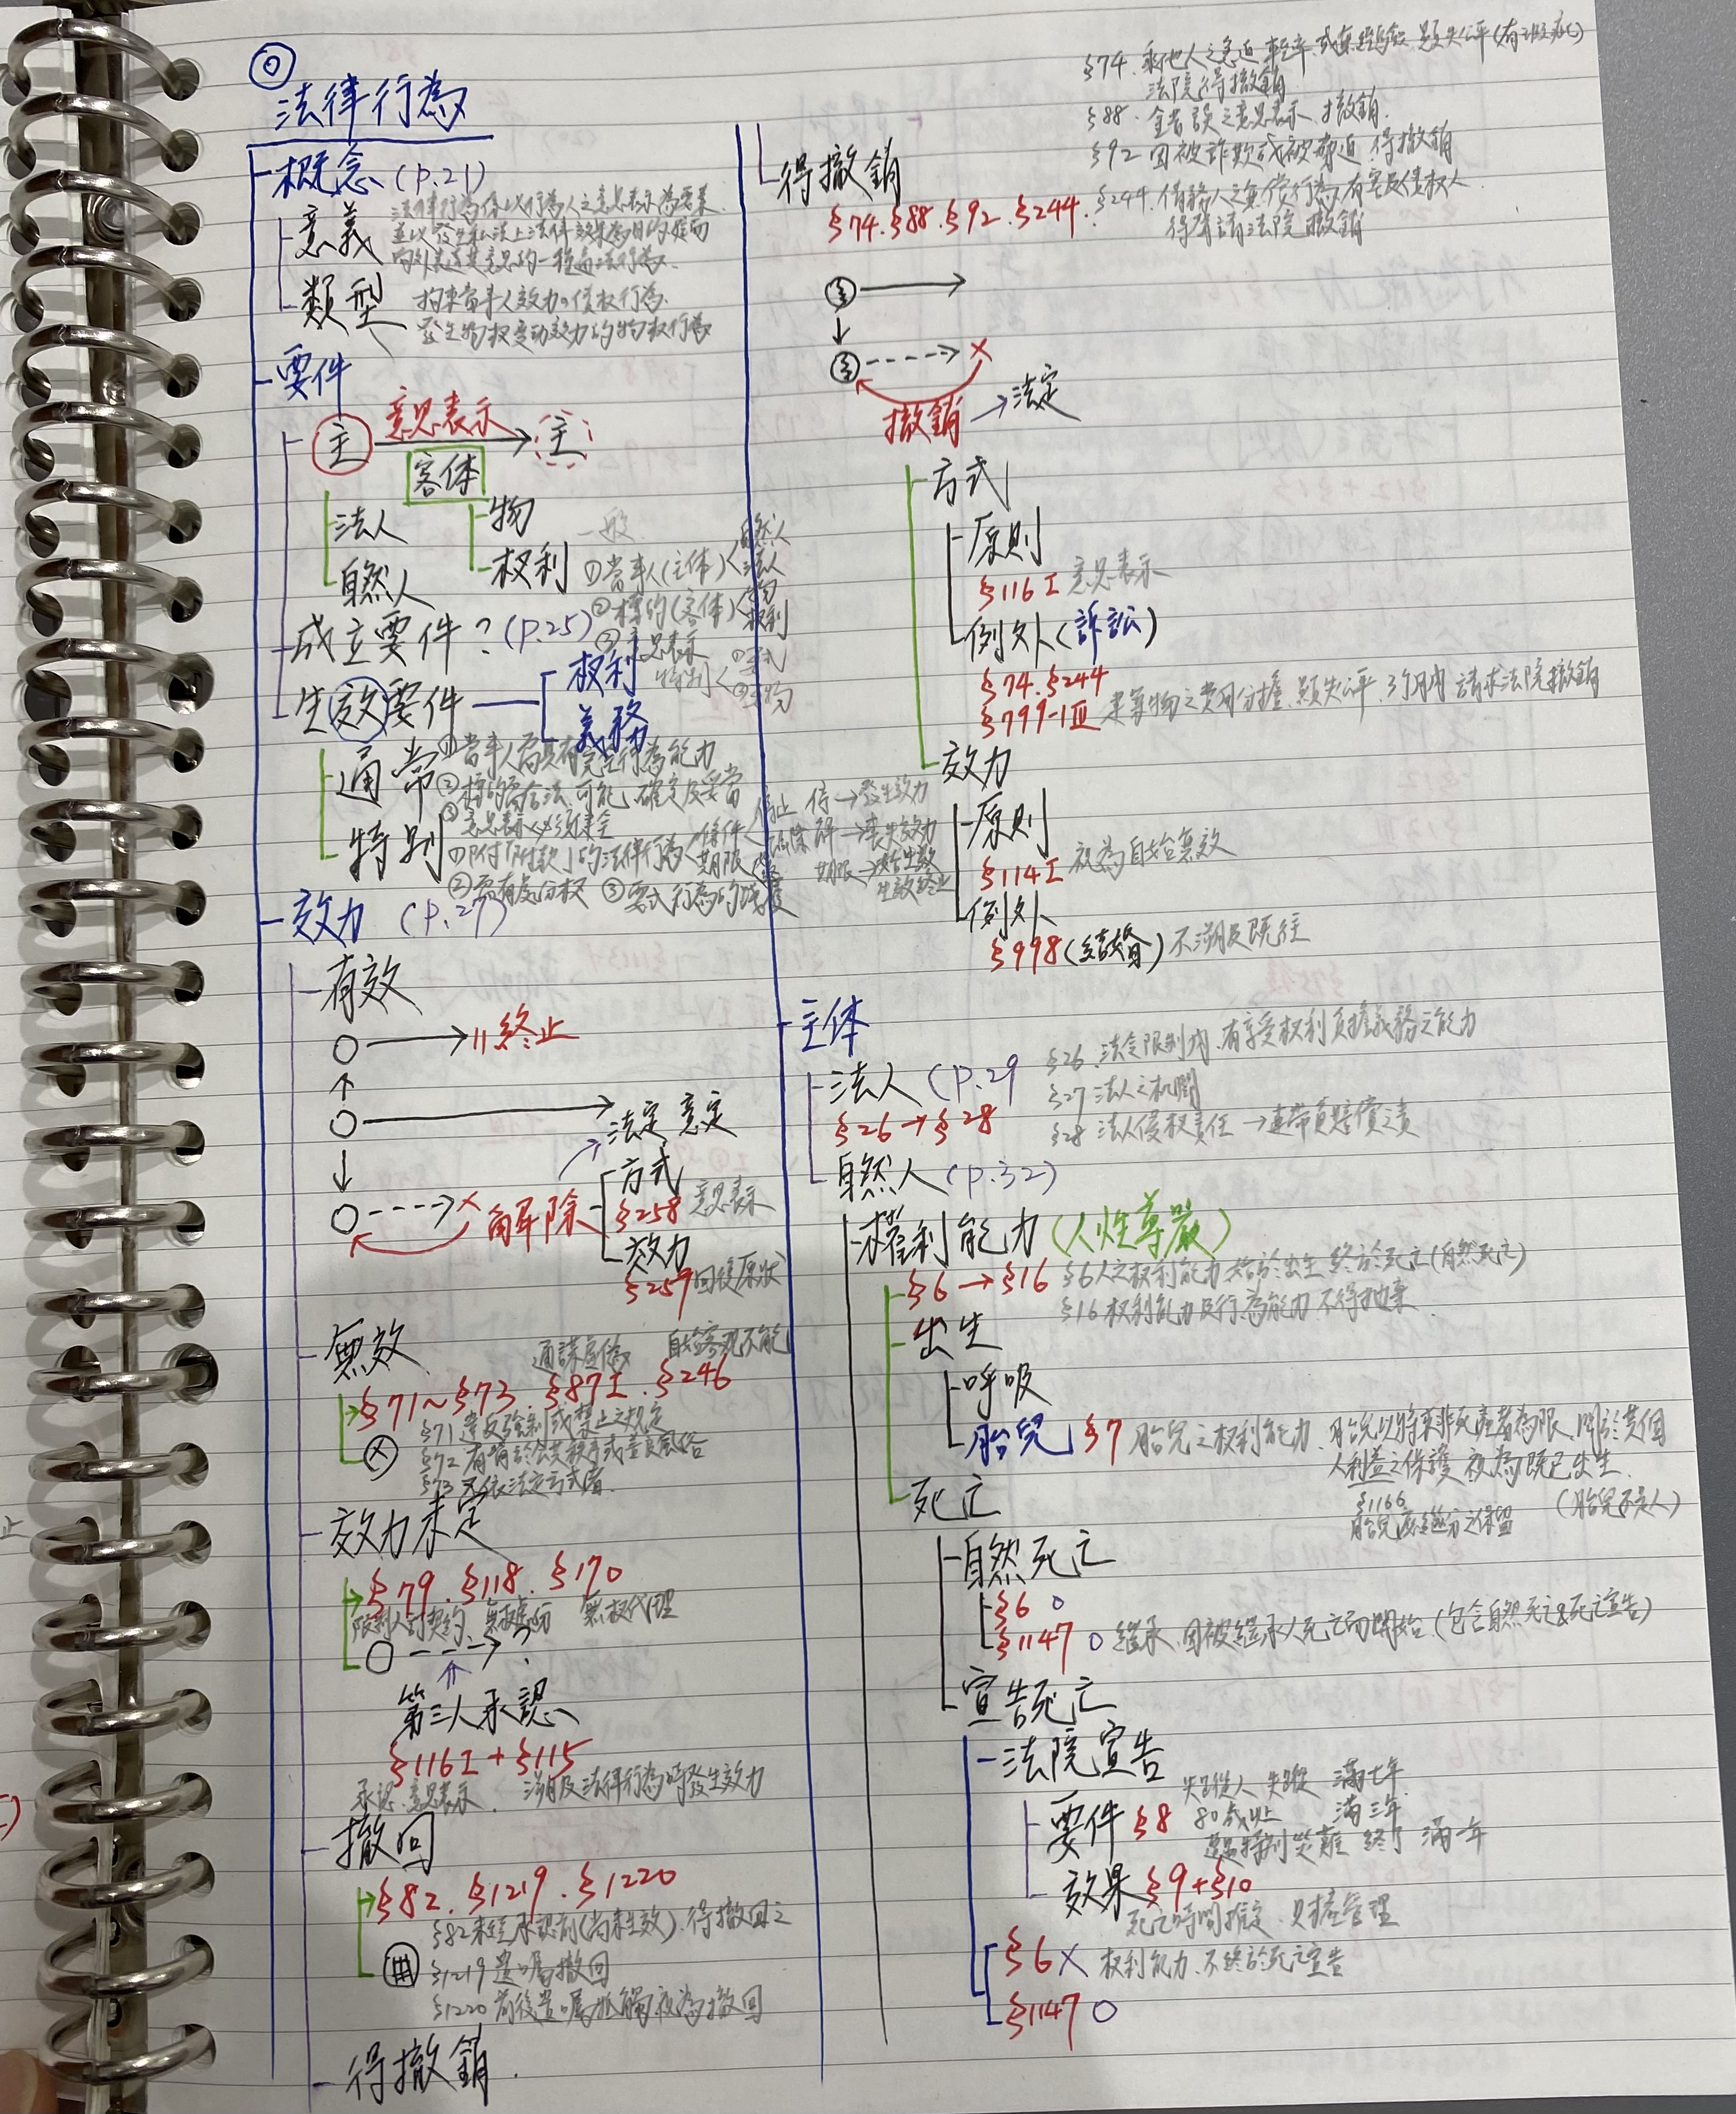 法律行為
概念(P.21)
意義 法律行為係以行為人之意思表示為要素
並以發生私法上法律效果為目的
類型 拘束當事人效力の債权行為
發生物权变动效力的物权行為
要件
主 意思表示 主
客体
法人 物
自然人 权利
一般
①當事人(主体) 自然人 法人
②標的(客体) 物 权利
③意思表示
成立要件?(P.25)
特別 ①要式 ②要物
生效要件 权利 義務
通常 ①當事人需具有完全行為能力
②標的需合法、可能、確定及妥當
③意思表示必須健全
特別 ①附「附款」的法律行為 條件 期限
停止 停→發生效力
解除 解→喪失效力
②需有處分权 ③要式行為的踐履
效力 (P.27)
有效
終止
法定 意定
解除 方式
§258 意思表示
效力
§259 回復原狀
無效
通謀虛偽 自始客观不能
§71~§73 §87I.§246
§71 違反強制或禁止之規定
§72 有背於公共秩序或善良風俗
§73 不依法定方式者.
效力未定
§79.§118.§170
限制人訂契約 無权處分 無权代理
?
第三人承認
§116I+§115
承認 意思表示. 溯及法律行為時發生效力
撤回
§82.§1219.§1220
§82 未經承認前(尚未生效).得撤回之
§1219 遺囑撤回
§1220 前後遺囑抵觸 視為撤回
得撤銷.
§74.乘他人之急迫 輕率 或無經驗 顯失公平
法院得撤銷
§88.錯誤之意思表示 撤銷.
§92 因被詐欺或被脅迫 得撤銷
§244.債務人之無償行為 有害及債权人
得聲請法院 撤銷
得撤銷
§74.§88.§92.§244.
撤銷 → 法定
方式
原則
§116I 意思表示
例外(訴訟)
§74.§244
§799-1III 建築物之費用分擔 顯失公平 3個月內 請求法院撤銷
效力
原則
§114I 視為自始無效
例外
§998(結婚)不溯及既往
主体
法人(P.29
§26→§28
§26.法令限制內.有享受权利負擔義務之能力
§27 法人之机關
§28 法人侵权責任→連帶負賠償之責
自然人(P.32)
權利能力(人性尊嚴)
§6→§16 §6人之权利能力 始於出生 終於死亡(自然死亡)
§16 权利能力及行為能力 不得拋棄.
出生
呼吸
胎兒 §7 胎兒之权利能力.胎兒以將來非死產者為限 關於其個
人利益之保護 視為既已出生.
§1166 (胎兒不是人)
胎兒應繼分之保留
死亡
自然死亡
§6 O
§1147 O 繼承.因被繼承人死亡而開始(包含自然死亡&死亡宣告)
宣告死亡
法院宣告
要件 §8 失蹤人 失蹤 滿七年
80歲以上 滿三年
遭特別災難 終了 滿一年
效果 §9+§10
死亡時間推定.財產管理
§6 X 权利能力.不終於死亡宣告
§1147 O